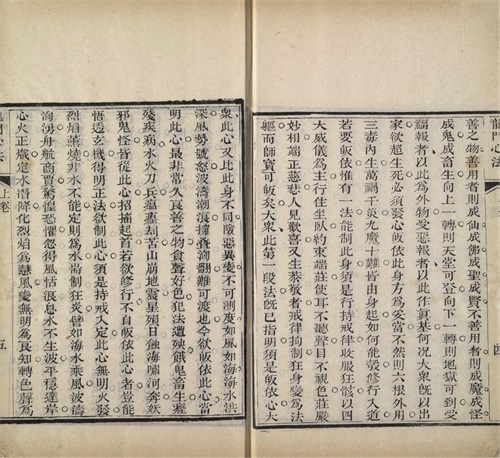 龍門心法
四
善之物善用者則成仙成佛成聖成賢不善用者則成魔成怪
成鬼成畜生向上一轉則天堂可登向下一轉則地獄可到受
福報者以此為外物受惡報者以此作真基何況大衆既以出
家欲超生死必須發心皈依此身方為妥當不然則六根外用
三毒內生萬禍千災九魔十難皆由身起如何能彀修行入道
若要皈依惟有一法能制此身須是行持戒律收服狂骸以四
大威儀為主行住坐臥約束端莊使耳不聽聲目不視色莊嚴
妙相端正慈悲人見歡喜又生恭敬者戒律拘制狂身變為法
軀而師寶可皈矣大衆此第一段法既已指明須是皈依心大
衆此心又比此身不同陰惡異變不可測度如風如海海水洪
深風勢號怒波濤潮浪撞疊洶翻難可渡地今欲皈依此心當
明此心最非常久良善之物貪聲好色犯法遭殃餓鬼畜生癃
殘疾病水火刀兵瘟蝗劫苦山崩地震星殞日蝕海嘯河奔妖
邪鬼怪皆從此心招搖起首若欲修行不自皈依此心者豈能
悟透玄機得明正法欲制此心須是持戒入定此心無明火發
烈焰薰燒非水不能定則為水當制狂炎譬如海水乘風波濤
洶湧舟航商賈驚惶恐懼忽得風恬浪息水不生波平穩達岸
心火正熾定水潛降化烈焰為慧風變無明為良知轉色聲為
上卷
五